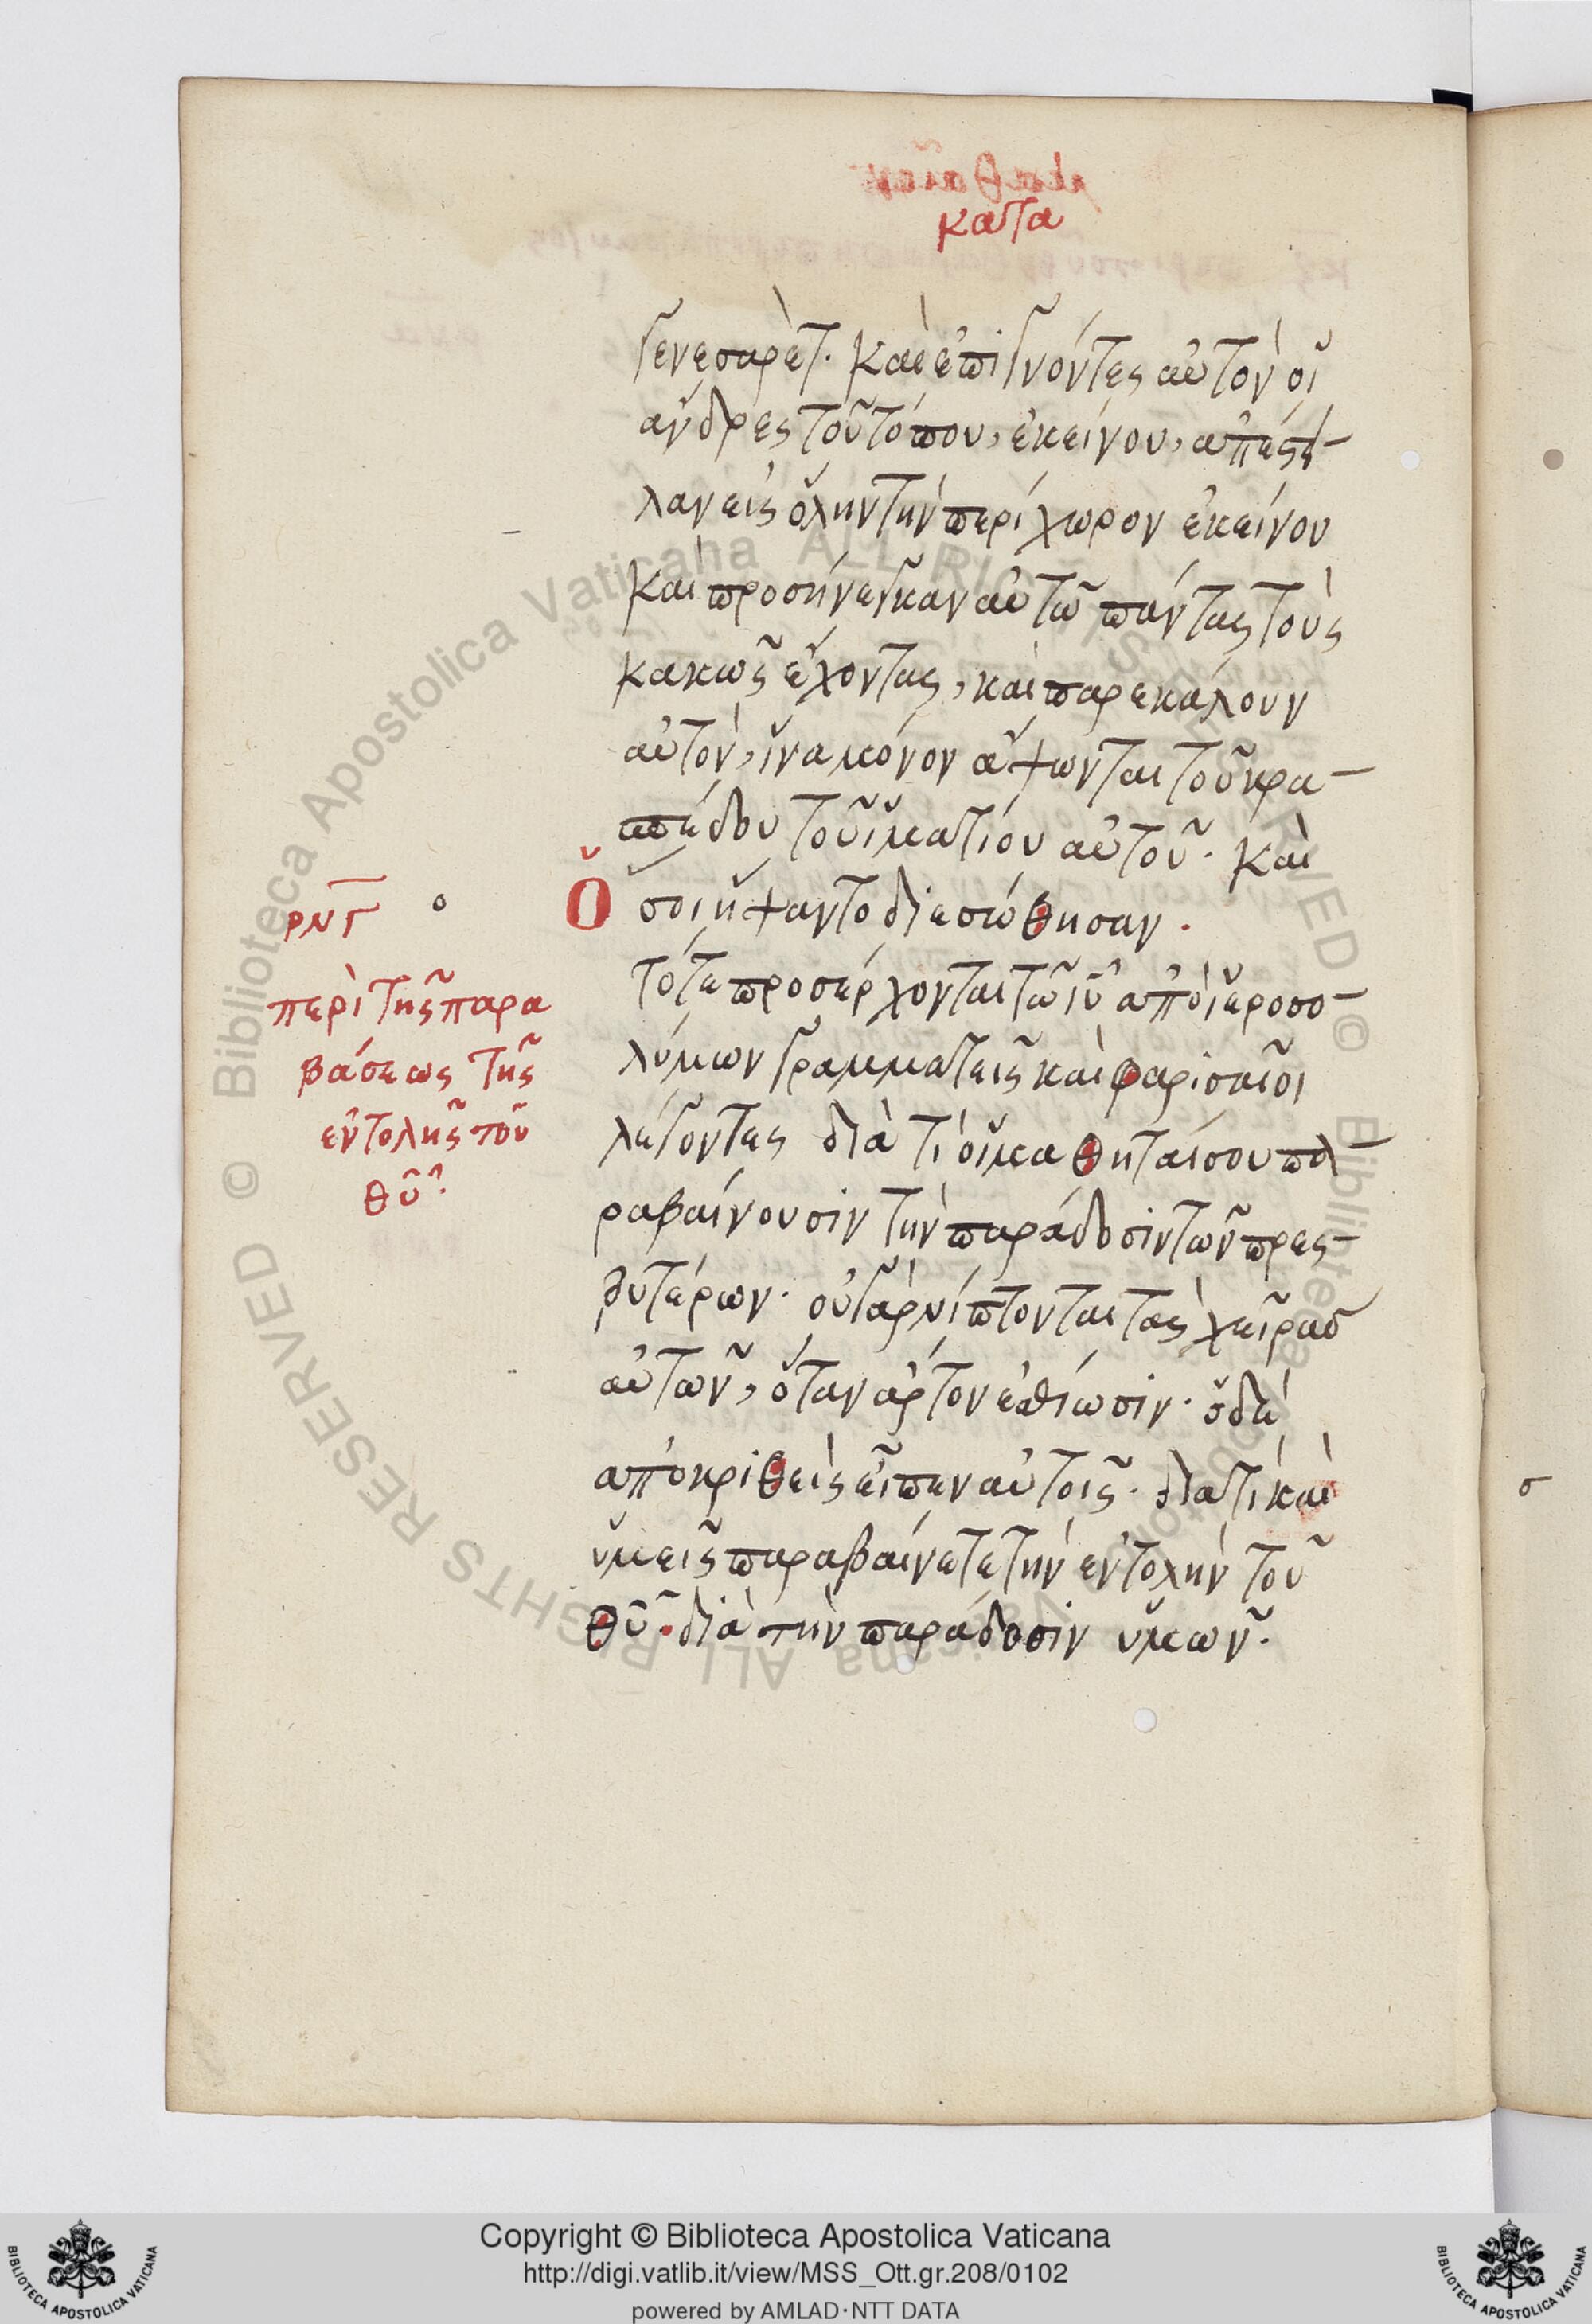 κατα
γενεσαρὲτ. Καὶ ἐπιγνόντες αὐτὸν οἱ
ἄνδρες τοῦ τόπου, ἐκείνου, ἀπέστ-
λαν εἰς ὅλην τὴν περίχωρον ἐκείνου
καὶ προσήνεγκαν αὐτῶ πάντας τοὺς
κακῶς ἔχοντας, καὶ παρεκάλουν
αὐτὸν, ἵνα μόνον ἅψωνται τοῦ κρα-
σπέδου τοῦ ἱματίου αὐτοῦ. Καὶ
Ὅσοι ἥψαντο διεσώθησαν.
ρνγ
τότε προσέρχονται τῶ ιυ ἀπὸ ἱεροσο-
λύμων γραμματεῖς καὶ φαρισαῖοι
λέγοντες διὰ τί οἱ μαθηταί σου πα-
ραβαίνουσιν τὴν παράδοσιν τῶν πρεσ-
βυτέρων. οὐ γὰρ νίπτονται τὰς χεῖρας
αὐτῶν, ὅταν ἄρτον ἐσθίωσιν. ὁ δὲ
ἀποκριθεὶς εἶπεν αὐτοῖς. διατί καὶ
ὑμεῖς παραβαίνετε τὴν ἐντολὴν τοῦ
θυ. διὰ τὴν παράδοσιν ὑμῶν.
περὶ τῆς παρα
βάσεως τῆς
ἐντολῆς τοῦ
θυ.
Copyright © Biblioteca Apostolica Vaticana
http://digi.vatlib.it/view/MSS_Ott.gr.208/0102
powered by AMLAD·NTT DATA
BIBLIOTECA APOSTOLICA VATICANA
BIBLIOTECA APOSTOLICA VATICANA
© Biblioteca Apostolica Vaticana ALL RIGHTS RESERVED
© Biblioteca Apostolica Vaticana ALL RIGHTS RESERVED